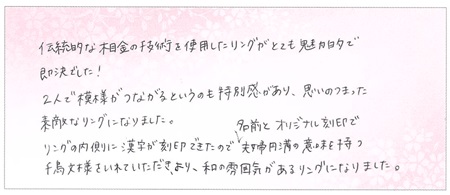 伝統的な杢金の技術を使用したリングがとても魅力的で
即決でした！
2人で模様がつながるというのも特別感があり、思いのつまった
素敵なリングになりました。
名前とオリジナル刻印で
リングの内側に漢字が刻印できたので夫婦円満の意味を持つ
千鳥文様をいれていただき、より、和の雰囲気があるリングになりました。